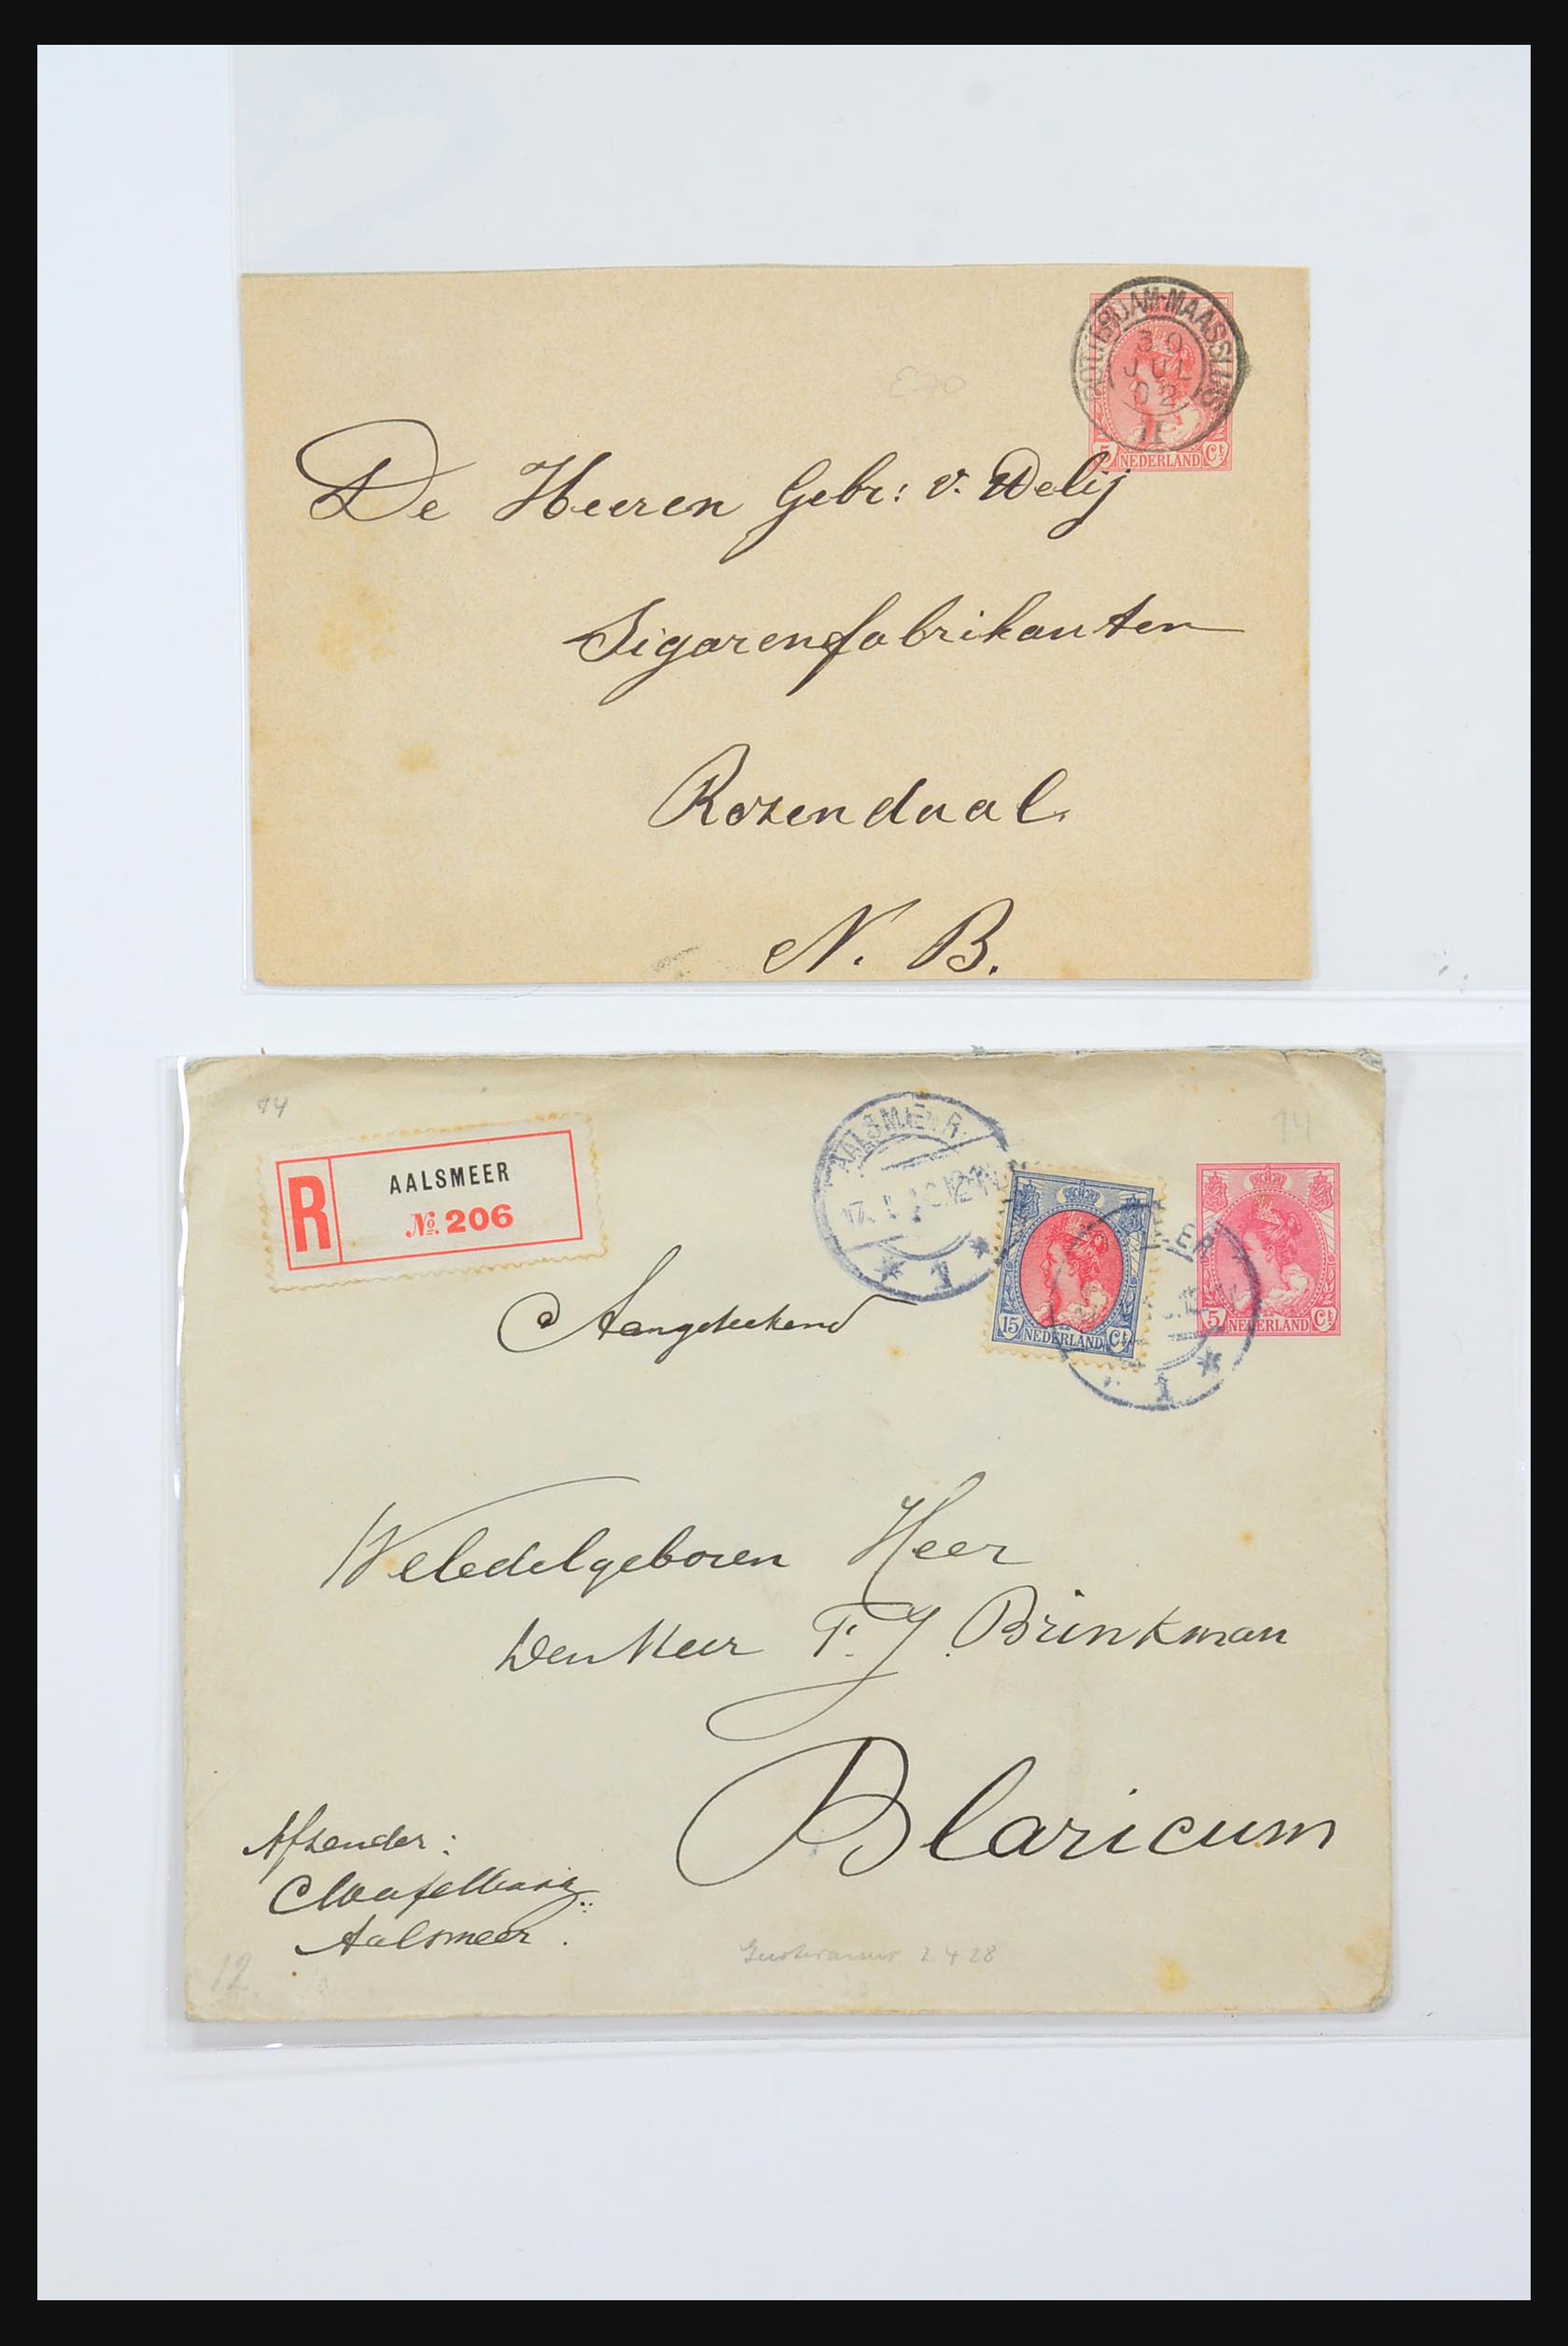 ROTTERDAM-MAASSLUIS
30
JUL
02
II
5 NEDERLAND Ct
E70
De Heeren Gebr: v. Welij
Sigarenfabrikanten
Rozendaal
N. B.
14
14
R
AALSMEER
№ 206
AALSMEER
1
15 NEDERLAND Ct
5 NEDERLAND Ct
1
Aangeteekend
Weledelgeboren Heer
Den Heer F. J. Brinkman
Blaricum
Afzender:
Aalsmeer.
12
2 4 28